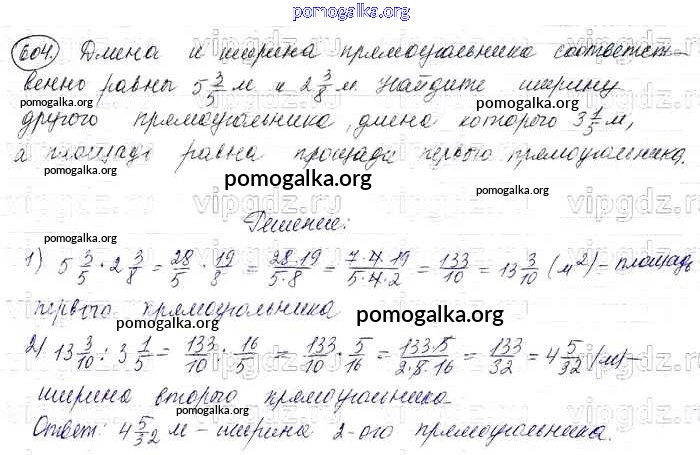 pomogalka.org
604. Длина и ширина прямоугольника соответст-
венно равны 5 3/5 м и 2 3/8 м. Найдите ширину
pomogalka.org pomogalka.org
другого прямоугольника, длина которого 3 1/5 м,
а площадь равна площади первого прямоугольника.
pomogalka.org pomogalka.org
vipgdz.ru
Решение:
pomogalka.org
1) 5 3/5 · 2 3/8 = 28/5 · 19/8 = 28·19/5·8 = 7·4·19/5·4·2 = 133/10 = 13 3/10 (м²) = площадь
первого прямоугольника
pomogalka.org pomogalka.org
2) 13 3/10 : 3 1/5 = 133/10 : 16/5 = 133/10 · 5/16 = 133·5/2·5·16 = 133/32 = 4 5/32 (м) –
ширина второго прямоугольника
pomogalka.org
Ответ: 4 5/32 м – ширина 2-ого прямоугольника.
pomogalka.org